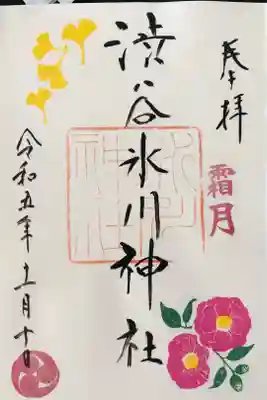 奉拝
霜月
渋谷氷川神社
令和五年十一月十日